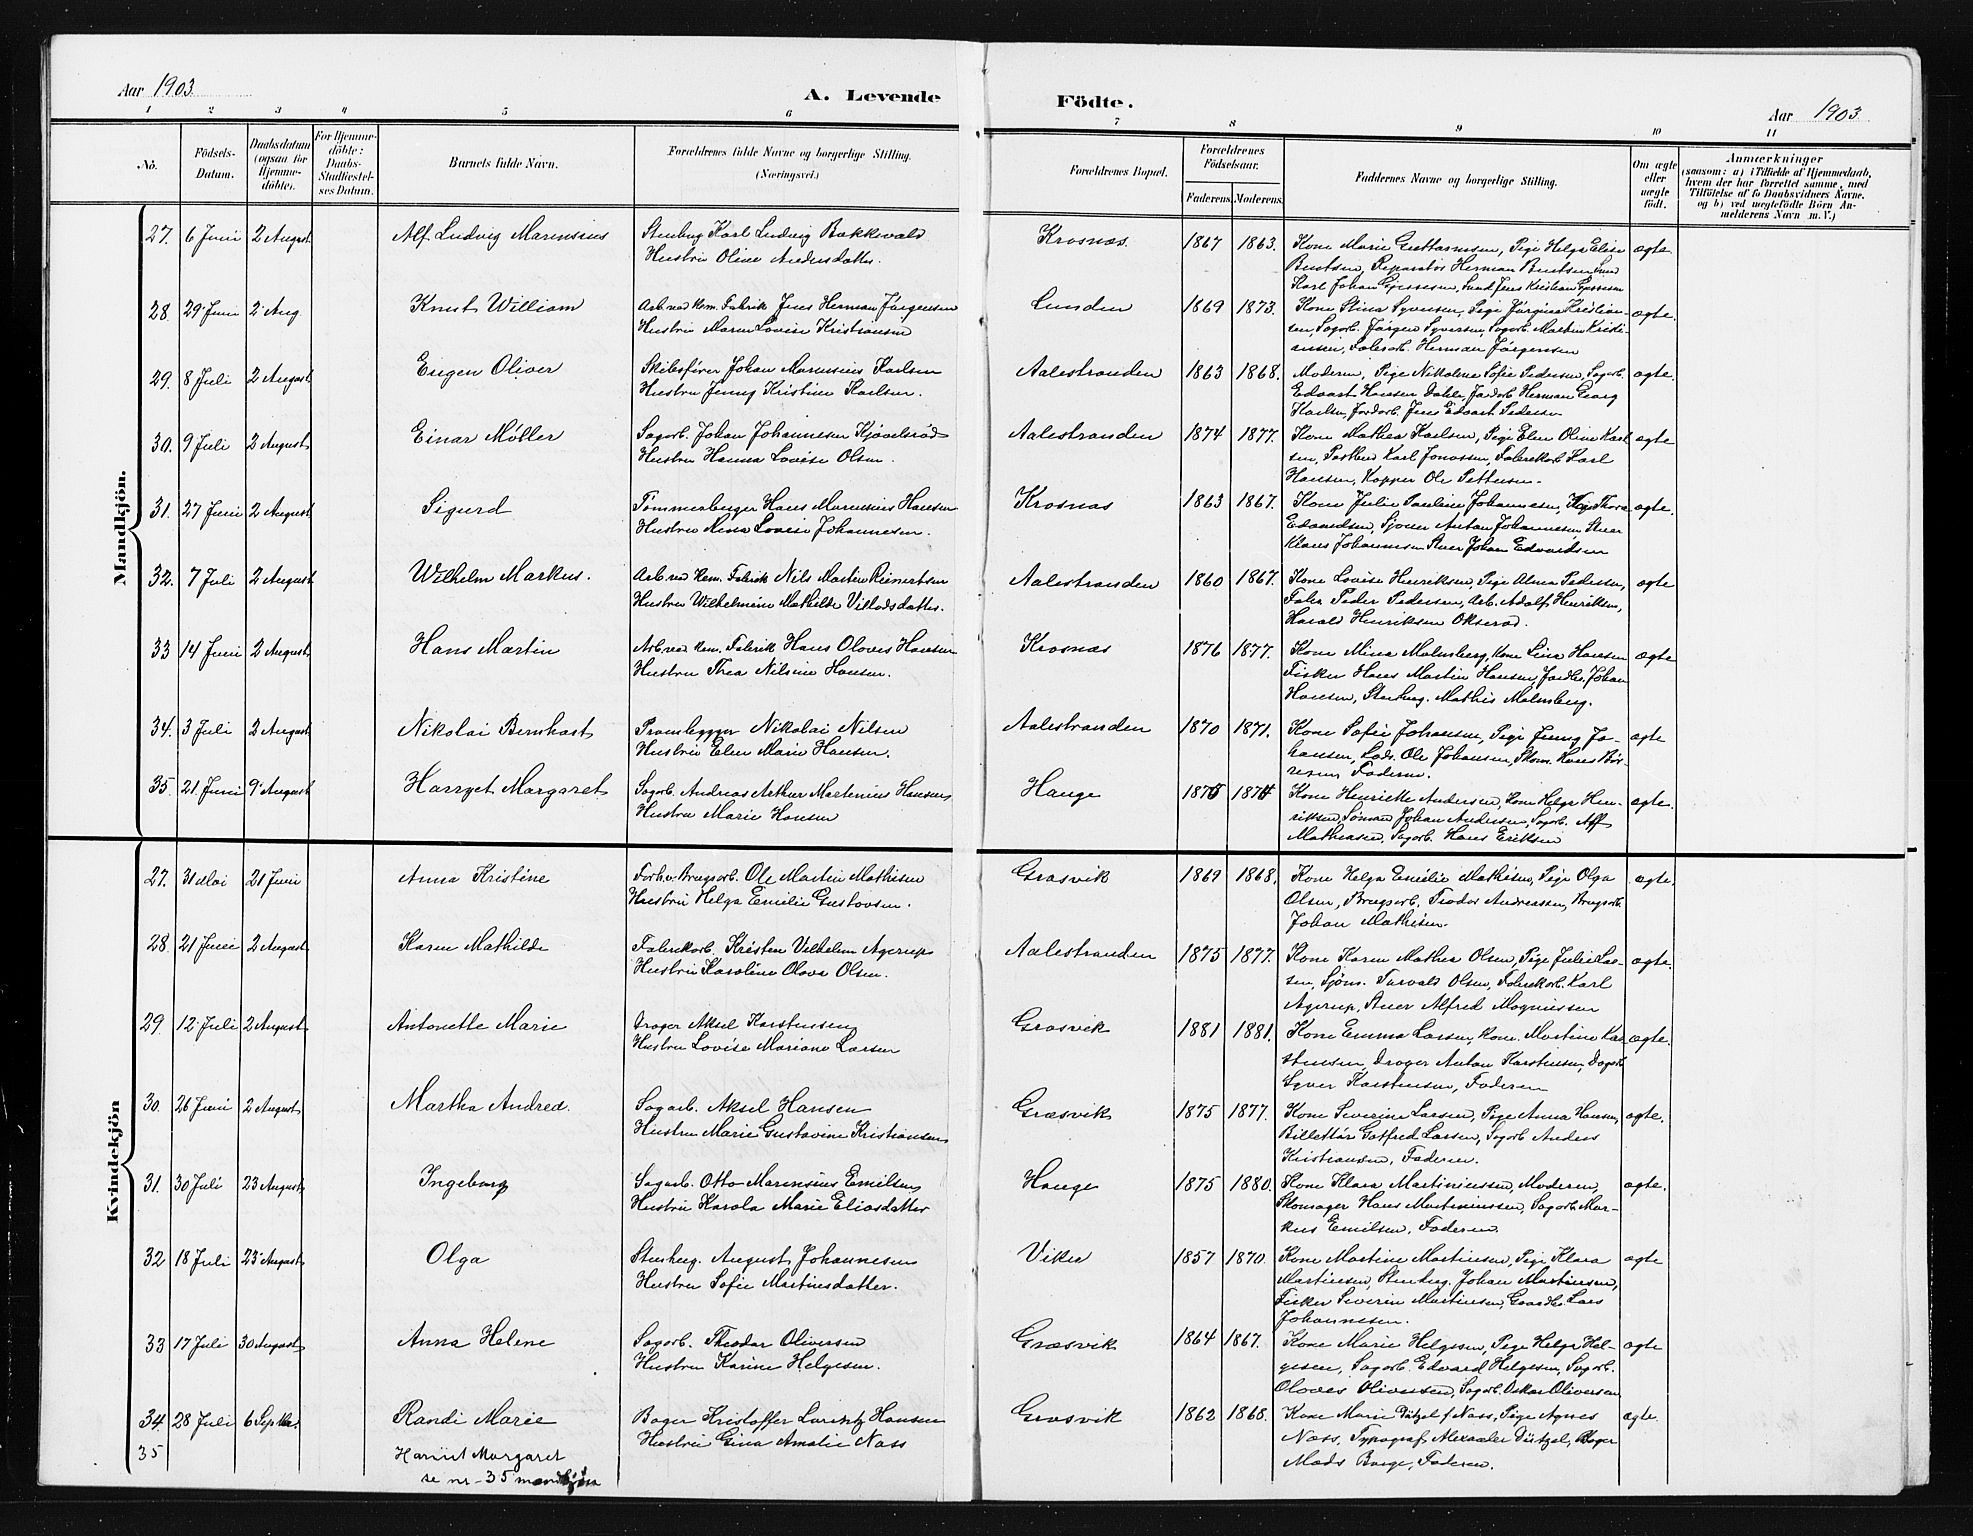 Aar 1903.
A. Levende
Födte.
Aar 1903
1 2 3 4 5 6 7 8 9 10 11
No.
Födsels-
Datum.
Daabsdatum
(ogsaa for
Hjemme-
döbte).
For Hjemme-
döbte:
Daabs-
Stadfæstel-
ses Datum.
Barnets fulde Navn.
Forældrenes fulde Navne og borgerlige Stilling.
(Næringsvei.)
Forældrenes Bopæl.
Forældrenes
Födselsaar.
Faderens. Moderens.
Faddernes Navne og borgerlige Stilling.
Om ægte
eller
uægte
födt.
Anmærkninger
(saasom: a) i Tilfælde af Hjemmedaab,
hvem der har forrettet samme, med
Tilföielse af to Daabsvidners Navne,
og b) ved uægtefödte Börn An-
melderens Navn m. V.)
Mandkjön.
27. 6 Juni 2 August Alf Ludvig Marensius
Stenhug Karl Ludvig Bakkevald
Hustru Oline Andersdatter.
Krosnæs. 1867 1863.
Kone Marie Guttormsen, Pige Helga Elise
Bentsen, Reparatör Herman Bentsen
Karl Johan
ægte.
28. 29 Juni 2 Aug. Knut William
Arb. ved kem. Fabrik Jens Herman Jörgensen
Hustru Maren Lovise Kristiansen
Lunden 1869 1873.
Kone Stina Syversen, Pige Jörgine Kristian-
sen, Sagarb. Jörgen Syversen, Sagarb. Martin Kristi-
ansen, Fabrarb. Herman Jörgensen
ægte.
29. 8 Juli 2 August Eugen Oliver
Skibsförer Johan Marensius Karlsen
Hustru Jenny Kristine Karlsen.
Aalestranden 1863 1868.
Moderen, Pige Nikoline Sofie Pedersen, Sagarb.
Edvart Hansen Dahle, Jordarb Herman Georg
Karlsen, Jordarb. Jens Edvart Pedersen
ægte.
30. 9 Juli 2 August Einar Möller
Sagarb. Johan Johannesen Kjövelsröd
Hustru Hanna Lovise Olsen.
Aalestranden 1874 1877.
Kone Mathea Karlsen, Pige Elen Oline Karl
sen, Karl Jonassen, Fabrikarb Karl
Hansen, Ole Pettersen.
ægte
31. 27 Juni 2 August Sigurd
Tömmerhuger Hans Marensius Hansen
Hustru Mina Lovise Johannesen.
Krosnæs 1863 1867.
Kone Julie Pauline Johannesen, Thora
Edvardsen, Anton Johannesen,
Klaus Johannesen Johan Edvardsen
ægte.
32. 7 Juli 2 August Wilhelm Markus.
Arb. ved kem. Fabrik Nils Martin Reinertsen
Hustru Wilhelmine Mathilde Villadsdatter.
Aalestranden 1860 1867.
Kone Lovise Henriksen, Pige Alma Pedersen,
Fabr. Peder Pedersen, Arb. Adolf Henriksen,
Harald Henriksen Okseröd.
ægte
33 14 Juni 2 August Hans Martin
Arb. ved kem. Fabrik Hans Olaves Hansen
Hustru Thea Nilsine Hansen.
Krosnæs 1876 1877.
Kone Mina Malmberg, Kone Lina Hansen
Fisker Hans Martin Hansen, Jordbr. Johan
Hansen, Stenhug. Mathis Malmberg.
ægte
34. 3 Juli 2 August Nikolai Bernhart
Prambygger Nikolai Nilsen
Hustru Elen Marie Hansen.
Aalestranden 1870 1871.
Kone Sofie Johansen, Pige Jenny Jo-
hansen, Lods. Ole Johansen, Skom.
Faderen.
ægte
35. 21 Juni 9 August Harryet Margaret
Sagarb. Andreas Arthur Martenius Hansen
Hustru Marie Hansen
Hauge 1875 1874
Kone Henriette Andersen, Kone Helga Hen-
riksen, Sömand Johan Andersen, Sagarb. Alf
Mathiasen, Sagarb. Hans Eriksen
ægte.
Kvindekjön
27. 31 Mai 21 Juni Anna Kristine
Forhv. Brugsarb. Ole Martin Mathisen
Hustru Helga Emilie Gustavsen.
Græsvik 1869 1868.
Kone Helga Emilie Mathisen, Pige Olga
Olsen, Brugsarb. Teodor Andreassen, Brugsarb.
Johan Mathisen.
ægte.
28. 21 Juni 2 August Karen Mathilde
Fabrikarb. Kristen Vilhelm Agerup
Hustru Karoline Olava Olsen.
Aalestranden 1875 1877.
Kone Karen Mathea Olsen, Pige Julie Las-
sen, Sjöm. Torvald Olsen, Fabrikarb. Karl
Agerup, Alfred Magnussen
ægte.
29. 12 Juli 2 August Antonette Marie
Drager Aksel Karstensen
Hustru Lovise Mariane Larsen
Græsvik 1881 1881.
Kone Emma Larsen, Kone Martine Kar
stensen, Drager Anton Karstensen, Dagarb
Syver Karstensen, Faderen
ægte.
30. 26 Juni 2 August Martha Andrea.
Sagarb. Aksel Hansen
Hustru Marie Gustavine Kristiansen
Græsvik 1875 1877.
Kone Severine Larsen, Pige Anna Hansen,
Billettör Gotfred Larsen, Sagarb Anders
Kristiansen, Faderen.
ægte.
31. 30 Juli 23 August Ingeborg
Sagarb. Otto Marensius Emilsen
Hustru Karola Marie Eliasdatter
Hauge 1875 1880.
Kone Klara Martiniussen, Moderen,
Skomager Hans Martiniussen, Sagarb. Mar-
kus Emilsen, Faderen
ægte.
32 18 Juli 23 August Olga
Stenhug. August Johannesen
Hustru Sofie Martinsdatter.
Viker 1857 1870.
Kone Martine Martinsen, Pige Klara
Martinsen, Stenhug. Johan Martinsen,
Fisker Severin Martinsen, Gaardbr. Lars
Johannesen.
ægte
33 17 Juli 30 August Anna Helene
Sagarb. Theodor Oliversen
Hustru Karine Helgesen.
Græsvik 1864 1867.
Kone Marie Helgesen, Pige Helga Hel-
gesen, Sagarb. Edvard Helgesen, Sagarb.
Olaves Oliversen, Sagarb. Oskar Oliversen
ægte
34. 28 Juli 6 Septbr. Randi Marie
Bager Kristoffer Lorentz Hansen
Hustru Gina Amalie Næss
Græsvik 1862 1868.
Kone Marie Dützel f. Næss, Pige Agnes
Næss, Typograf Alexander Dützel, Bager
Mads Borge, Faderen.
ægte.
35 Harriet Margaret
se nr. 35 mandkjön